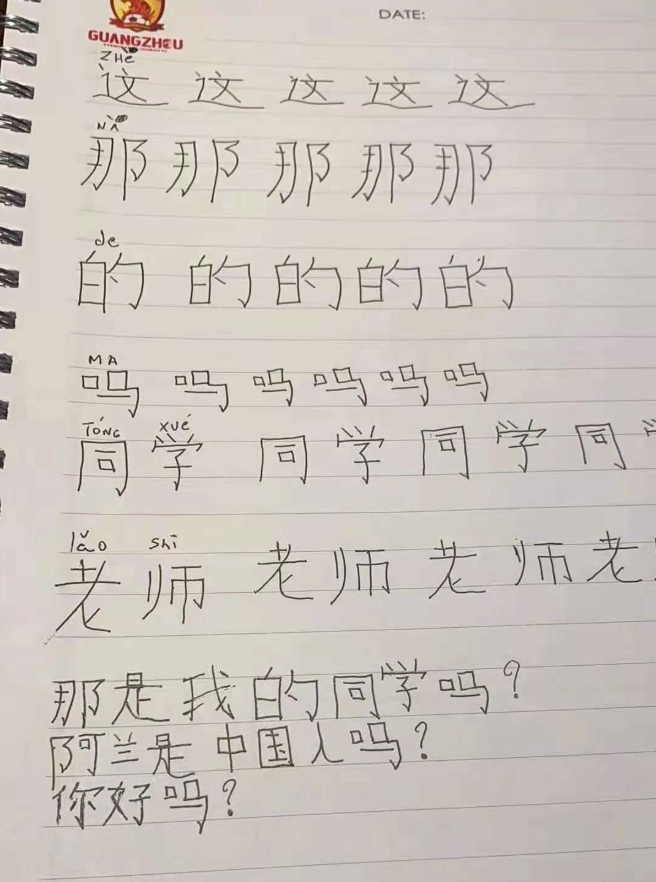 DATE:
GUANGZHOU
ZHè
这 这 这 这 这
NÀ
那 那 那 那 那
de
的 的 的 的 的
MA
吗 吗 吗 吗 吗 吗
TóNG xué
同 学 同 学 同 学 同
lǎo shī
老 师 老 师 老 师 老
那是我的同学吗?
阿兰是中国人吗?
你好吗?